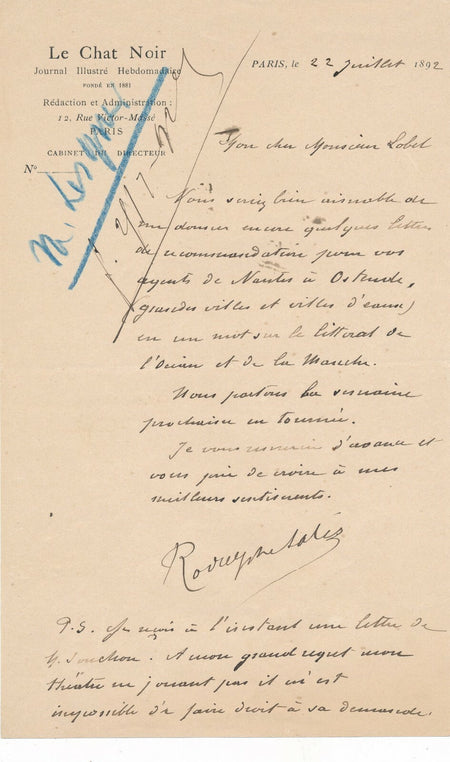 Le Chat Noir
Journal Illustré Hebdomadaire
FONDÉ EN 1881
Rédaction et Administration :
12, Rue Victor-Massé
PARIS
CABINET DU DIRECTEUR
No
PARIS, le 22 Juillet 1892
Mon cher Monsieur Lobel
Vous seriez bien aimable de
me donner encore quelques lettres
de recommandation pour vos
agents de Nantes à Ostende,
(grandes villes et villes d'eaux)
en un mot sur le littoral de
l'Océan et de la Manche.
Nous partons la semaine
prochaine en tournée.
Je vous remercie d'avance et
vous prie de croire à mes
meilleurs sentiments.
Rodolphe Salis
P.S. Je reçois à l'instant une lettre de
M. Souchon. A mon grand regret mon
théâtre ne jouant pas il m'est
impossible d'y faire droit à sa demande.